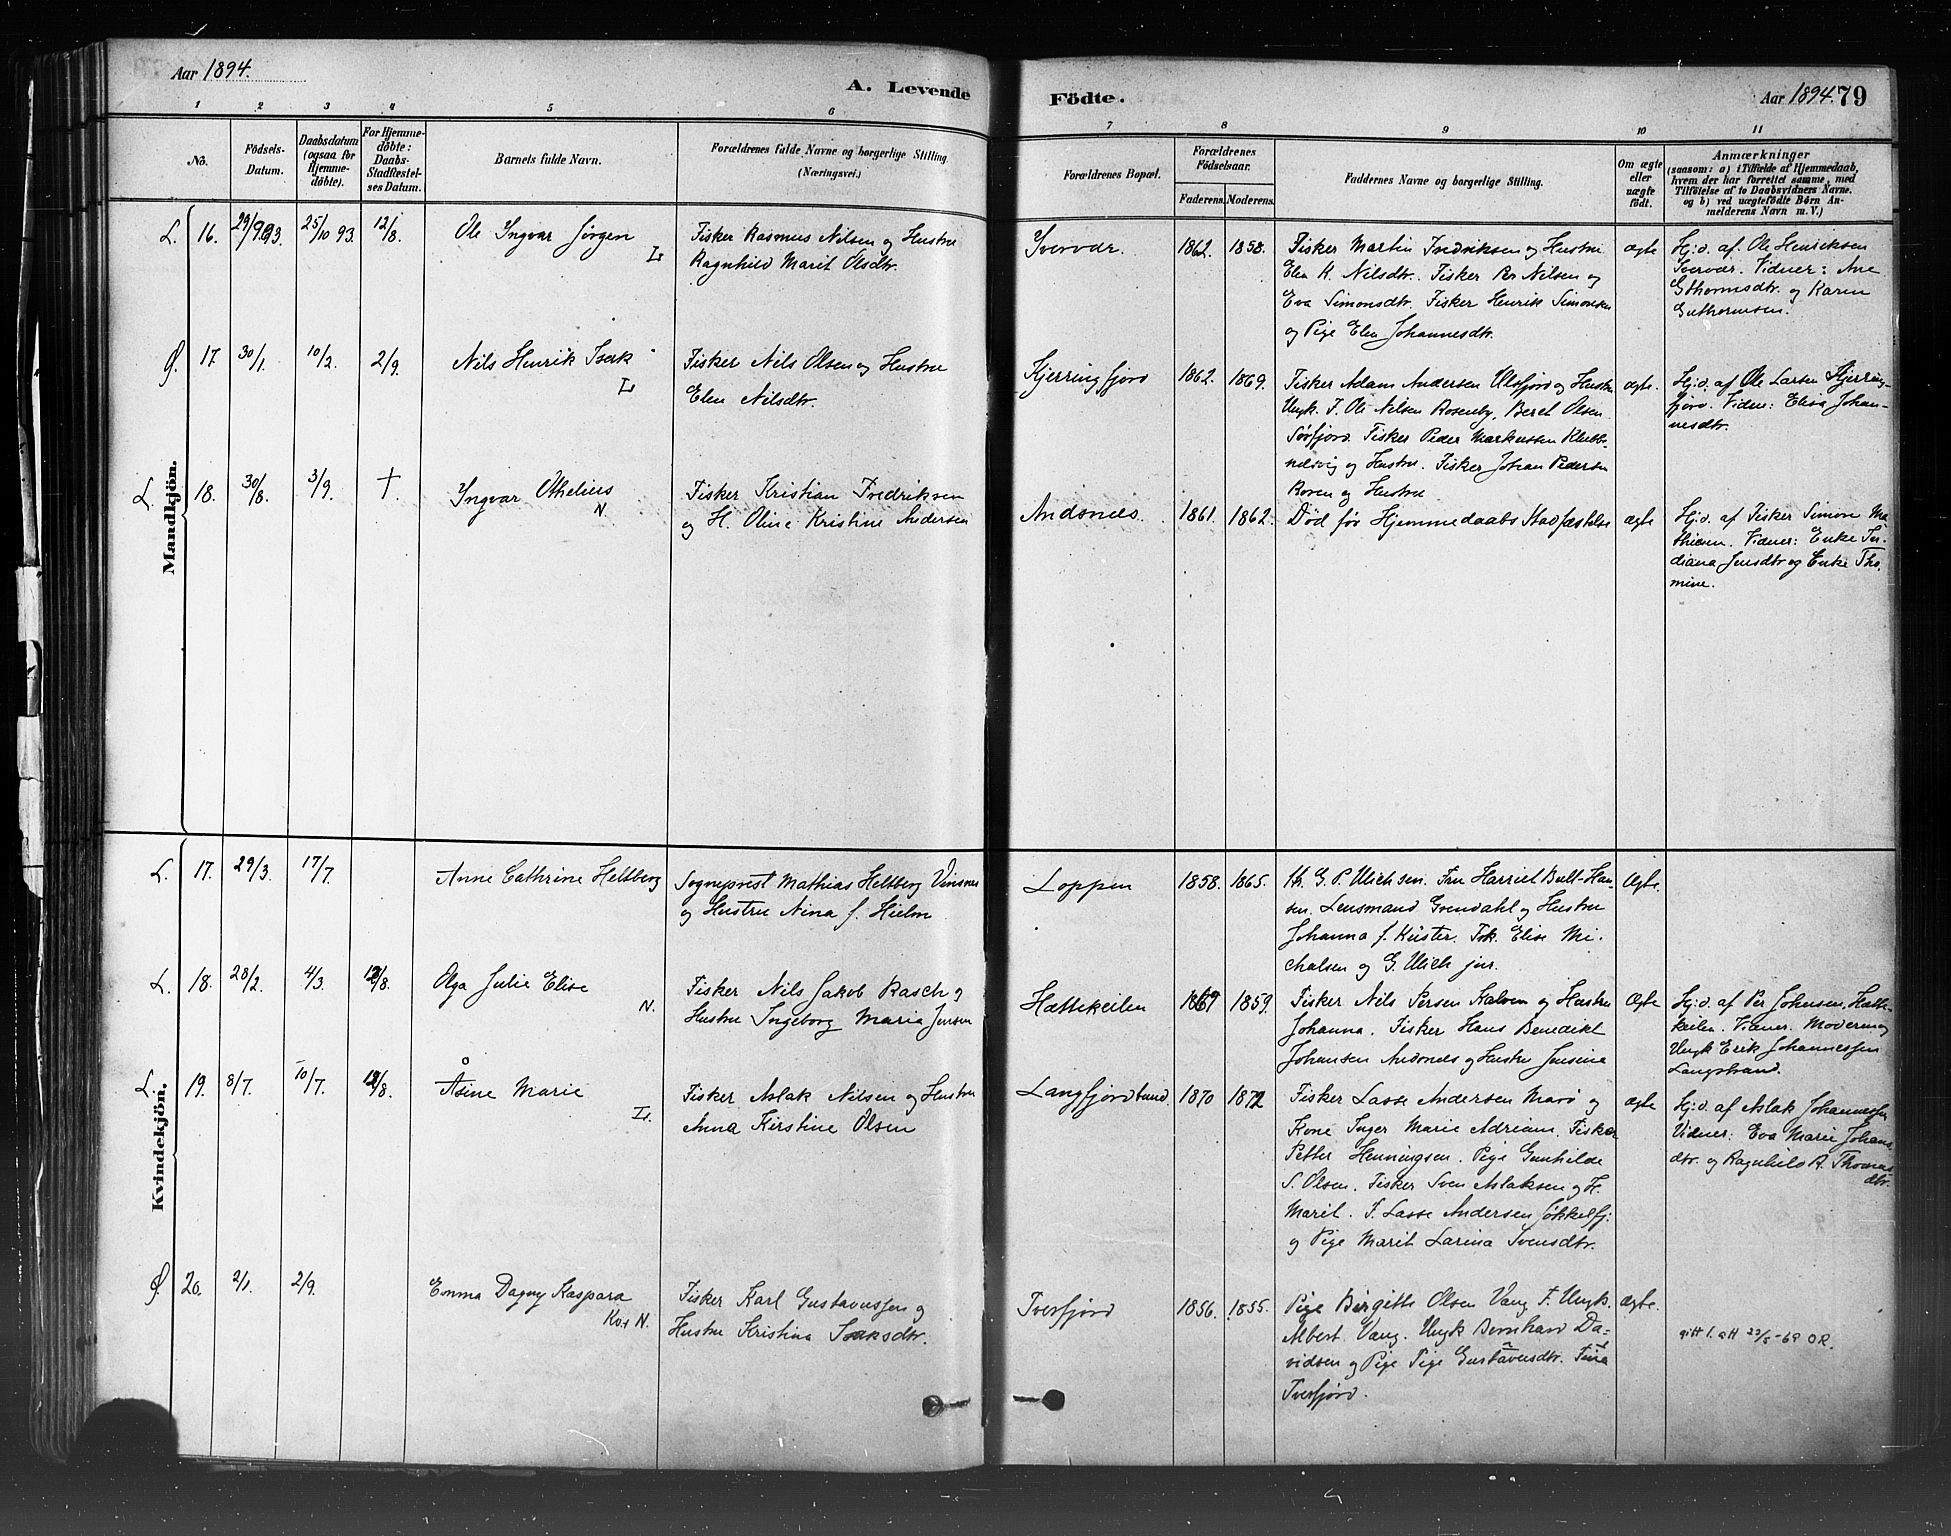 Aar 1894.
A. Levende
Födte.
Aar 1894. 79
1 2 3 4 5 6 7 8 9 10 11
No.
Födsels-
Datum.
Daabsdatum
(ogsaa for
Hjemme-
döbte).
For Hjemme-
döbte:
Daabs-
Stadfæstel-
ses Datum.
Barnets fulde Navn.
Forældrenes fulde Navne og borgerlige Stilling.
(Næringsvei.)
Forældrenes Bopæl.
Forældrenes
Födselsaar.
Faderens. Moderens.
Faddernes Navne og borgerlige Stilling.
Om ægte
eller
uægte
födt.
Anmærkninger
(saasom: a) i Tilfælde af Hjemmedaab,
hvem der har forrettet samme, med
Tilföielse af to Daabsvidners Navne.
og b) ved uægtefödte Börn An-
melderens Navn m. V.)
Mandkjön.
L. 16. 29/9 93. 25/10 93. 12/8. Ole Ingvar Jørgen L
Fisker Rasmus Nilsen og Hustru
Ragnhild Marit Olsdtr.
1862. 1858.
Fisker Martin Fredriksen og Hustru
Elen K. Nilsdtr. Fisker Nilsen og
Eva Simonsdtr. Fisker Henrik Simonsen
og Pige Elen Johannesdtr.
ægte
Hj.d. af. Ole Henriksen
Vidner: Ane
Gthormsdtr. og Karen
Guthormsen.
Ø. 17 30/1. 10/2. 2/9. Nils Henrik Isak L
Fisker Nils Olsen og Hustru
Elen Nilsdtr.
Kjerringfjord 1862. 1869.
Fisker Adam Andersen Ulsfjord og Hustru
Ungk. F. Ole Nilsen Rosenby, Beret Olsen
Sørfjord. Fisker Peder Markussen Klubb-
nesvig og Hustru. Fisker Johan Pedersen
og Hustru
ægte.
Hj.d. af Ole Larsen Kjerring-
fjord. Vidner: Elisa Johan-
nesdtr.
L. 18. 30/8. 3/9. †. Ingvar Othelius N
Fisker Kristian Fredriksen
og H. Oline Kristine Andersen
Andsnes. 1861. 1862.
Død før Hjemmedaabs Stadfæstelse
ægte
Hj.d. af Fisker Simon Ma
thisen. Vidner: Enke
diana Jensdtr og Enke Tho
mine.
Kvindekjön.
L. 17. 29/3. 17/7. Anne Cathrine Heltberg
Sogneprest Mathias Heltberg Vinsnes
og Hustru Nina f. Hielm
Loppen 1858. 1865.
Hr. G. P. Ulichsen. Fru Harriet Bull-Han-
sen. Lensmand Grendahl og Hustru
Johanna f. Küster. Frk. Elise Mi-
chalsen og G. Ulich jur.
Ægte.
L. 18. 28/2. 4/3. 12/8. Olga Julie Elise N.
Fisker Nils Jakob Rasch og
Hustru Ingeborg Maria Jensen
Hattekeilen 1869 1859.
Fisker Nils Persen Kalven og Hustru
Johanna. Fisker Hans Benedikt
Johansen Andsnes og Hustru Jensine
Ægte
Hj.d. af Per Johnsen, Hatte-
keilen. Vidner. Moderen og
Ungk Erik Johannessen
Langstrand.
L. 19. 8/7. 10/7. 12/8. Åsine Marie L.
Fisker Aslak Nilsen og Hustru
Anna Kirstine Olsen
Langfjordbund. 1870 1872
Fisker Lasse Andersen Marø og
Kone Inger Marie Adrians. Fisker
Petter Henningsen. Pige Gunhilde
S. Olsen. Fisker Sven Aslaksen og H.
Marit. F. Lasse Andersen Jøkkelfj:
og Pige Marit Larina Svensdtr.
ægte
Hj.d. af Aslak Johannessen
Vidner: Eva Marie Johans
dtr. og Ragnhild A. Thomas
dtr.
Ø. 20. 2/1. 2/9. Emma Dagny Kaspara
Kv. N.
Fisker Karl Gustavussen og
Hustru Kristina Isaksdtr.
Tverfjord 1856. 1855.
Pige Birgitte Olsen Vang F. Ungk.
Albert Vang. Ungk Bernhard Da-
vidsen og Pige Pige Gustavusdtr. Tina
Tverfjord.
ægte.
gift 1. att 23/5-69 O.R.